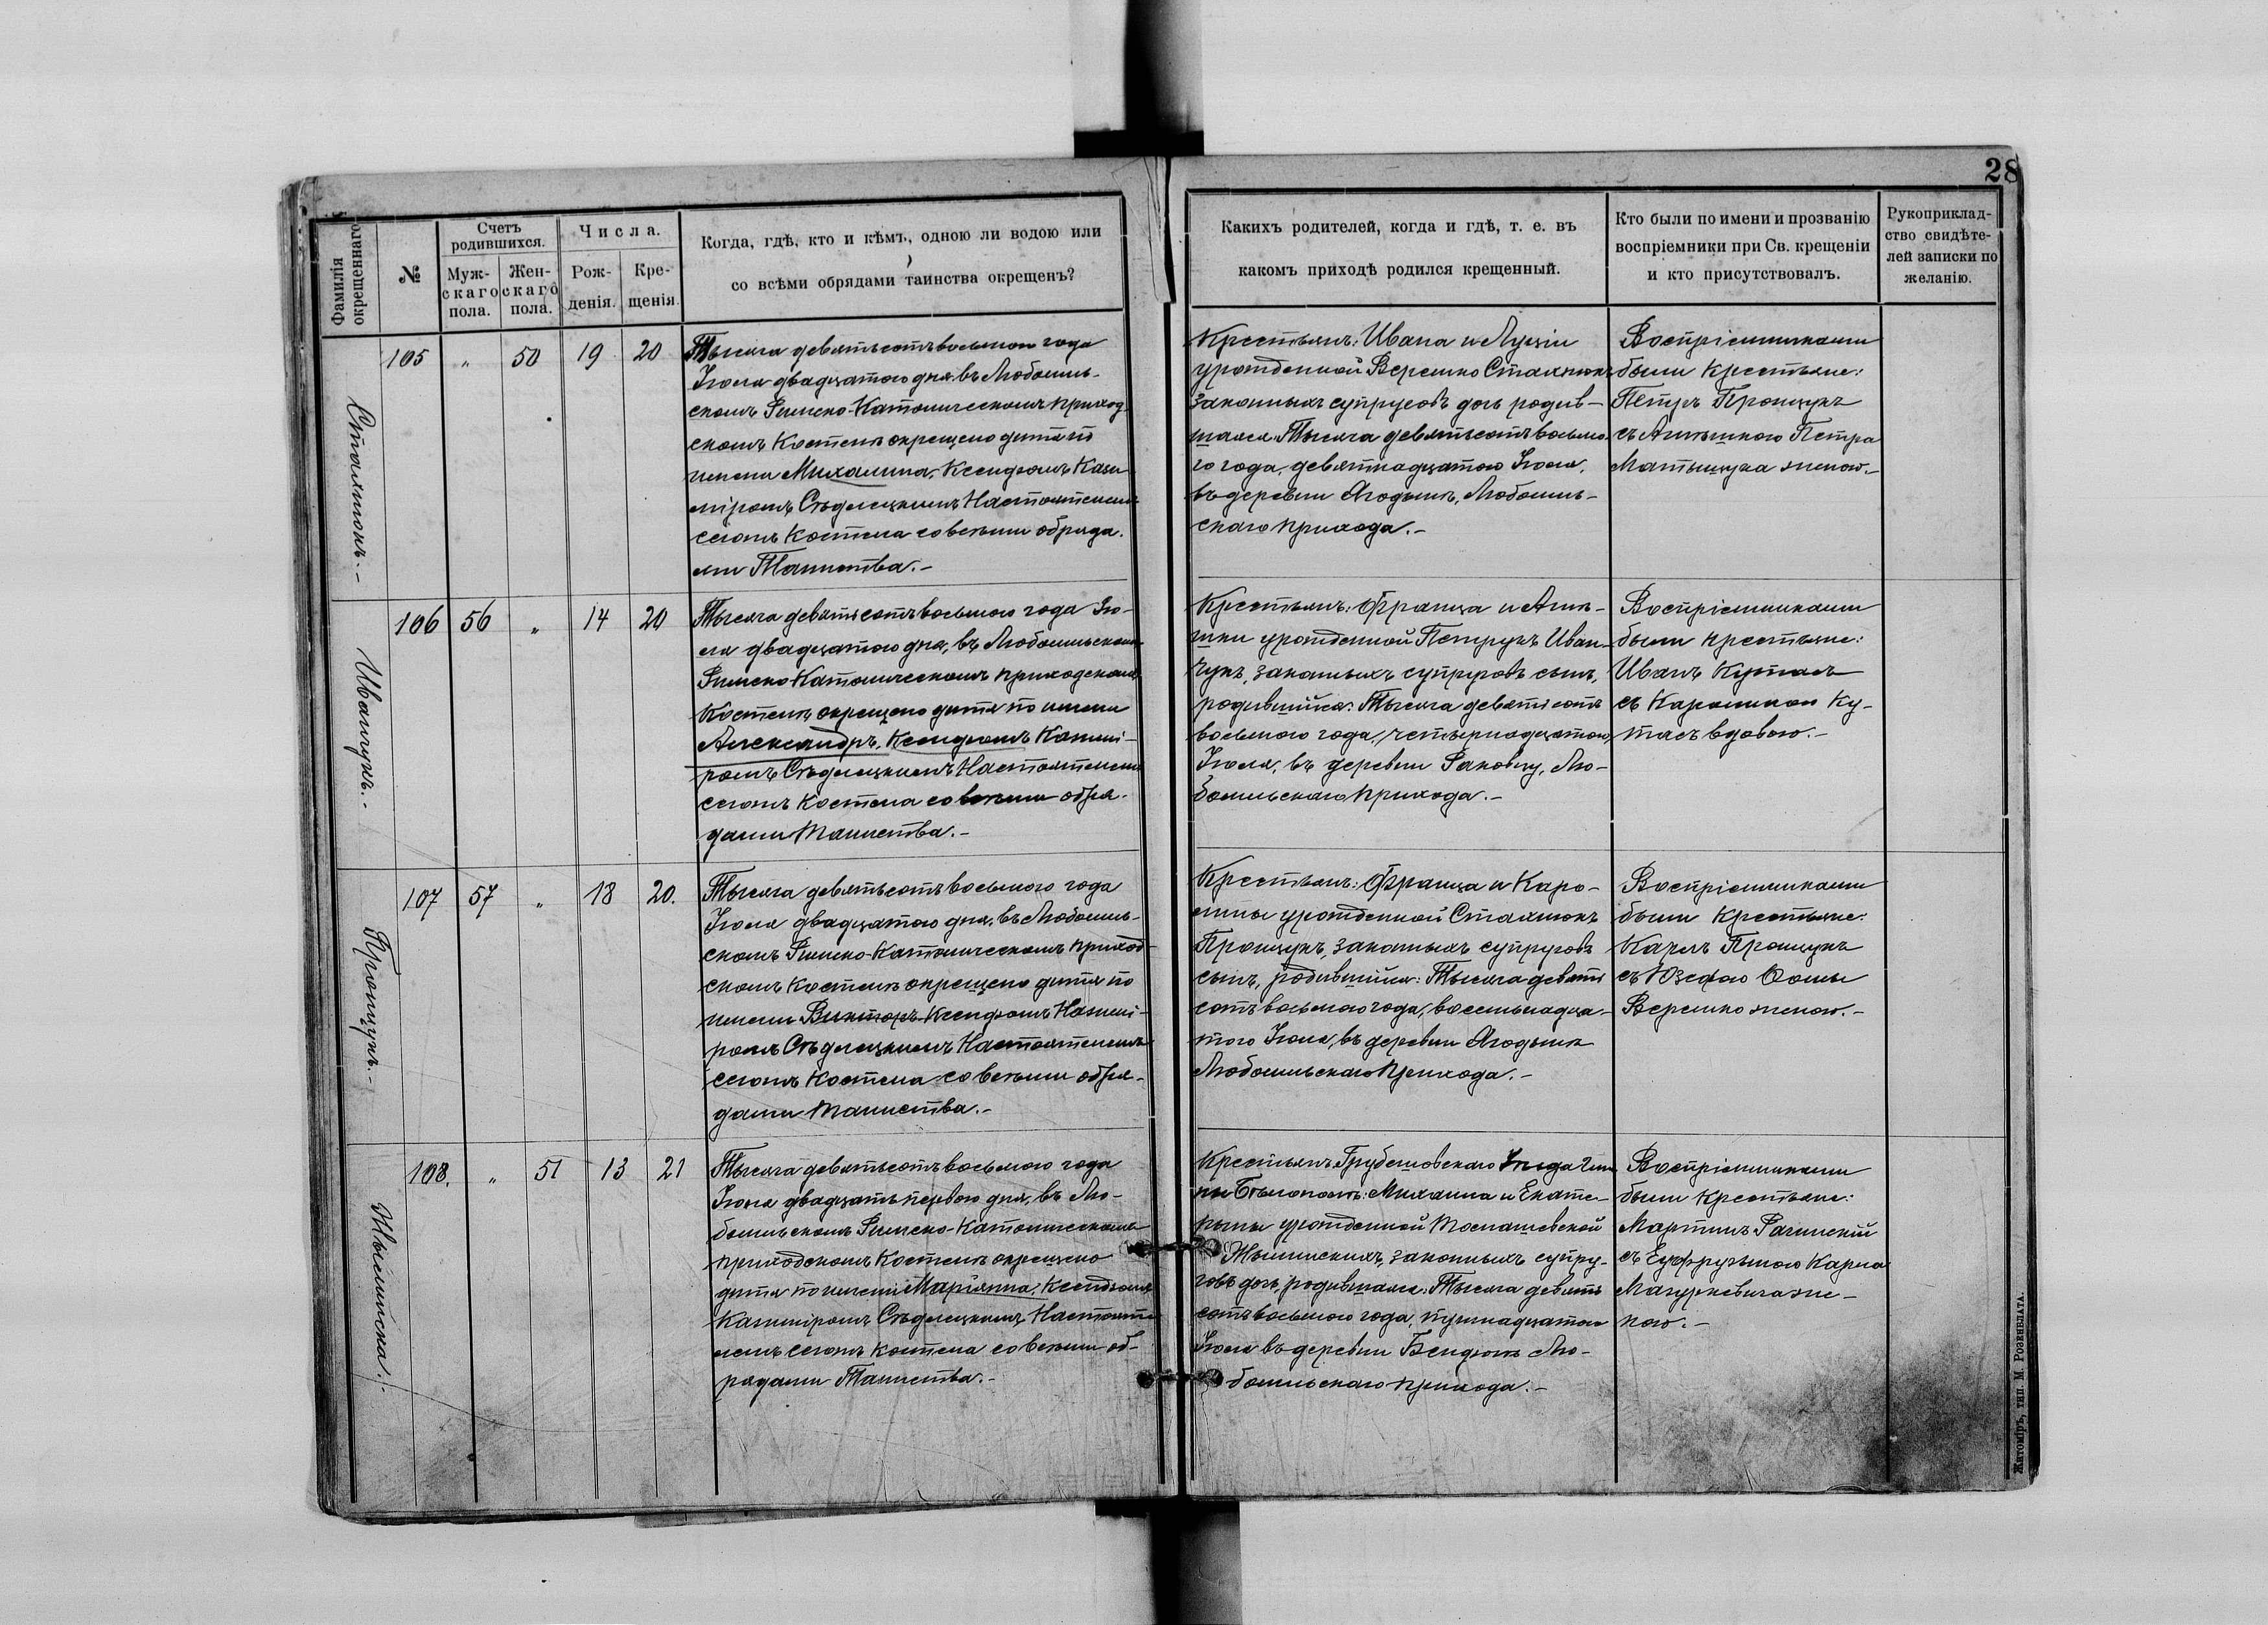 28
Фамилія окрещеннаго
№
Счетъ родившихся.
Муж-
скаго
пола.
Жен-
скаго
пола.
Числа.
Рож-
денія.
Кре-
щенія.
Когда, гдѣ, кто и кѣмъ, одною ли водою или
со всѣми обрядами таинства окрещенъ?
Какихъ родителей, когда и гдѣ, т. е. въ
какомъ приходѣ родился крещенный.
Кто были по имени и прозванію
воспріемники при Св. крещеніи
и кто присутствовалъ.
Рукоприклад-
ство свидѣте-
лей записки по
желанію.
Стахнюкъ.-
105 " 50 19 20
Тысяча девятьсотъ восьмого года
Іюля двадцатого дня въ Любомль-
скомъ Римско-Католическомъ приход-
скомъ Костелѣ окрещено дитя по
имени Михалина, Ксендзомъ Кази-
міромъ Сѣдлецкимъ Настоятелемъ
сегожъ Костела со всѣми обряда-
ми Таинства.-
Крестьянъ: Ивана и Луціи
урожденной Веремко Стахнюкъ
законныхъ супруговъ дочь родив-
шаяся: Тысяча девятьсотъ восьмо-
го года, девятнадцатого Іюля,
въ деревни Ягодынѣ, Любомль-
скаго прихода.-
Воспріемниками
были крестьяне:
Петръ Прощукъ
съ Петра
жено.-
Иванчукъ.-
106 56 " 14 20
Тысяча девятьсотъ восьмого года Ію-
ля двадцатого дня, въ Любомльскомъ
Римско Католическомъ приходскомъ
Костелѣ окрещено дитя по имени
Александръ, Ксендзомъ Казимі-
ромъ Сѣдлецкимъ Настоятелемъ
сегожъ Костела со всѣми обря-
дами таинства.-
Крестьянъ: Франца и Агнѣ-
шки урожденной Петрукъ Иван-
чукъ, законныхъ супруговъ сынъ,
родившійся: Тысяча девятьсотъ
восьмого года, четырнадцатого
Іюля, въ деревни Раковцу, Лю-
бомльскаго прихода.-
Воспріемниками
были крестьяне:
Иванъ Кутасъ
съ Каролиною Ку-
тасъ вдовою.-
Прощукъ.-
107 57 " 18 20.
Тысяча девятьсотъ восьмого года
Іюля двадцатого дня, въ Любомль-
скомъ Римско-Католическомъ приход-
скомъ Костелѣ окрещено дитя по
имени Викторъ Ксендзомъ Казимі-
ромъ Сѣдлецкимъ Настоятелемъ
сегожъ Костела со всѣми обря-
дами таинства.-
Крестьянъ: Франца и Каро-
лины урожденной Стахнюкъ
Прощукъ, законныхъ супруговъ
сынъ, родившійся: Тысяча девять
сотъ восьмого года, восемьнадца-
того Іюля, въ деревни Ягодынѣ
Любомльскаго прихода.-
Воспріемниками
были крестьяне:
Карлъ Прощукъ
съ Юзефою Ѳомы
Веремко женою.-
108. " 51 13 21
Тысяча девятьсотъ восьмого года
Іюля двадцать первого дня, въ Лю-
бомльскомъ Римско-Католическомъ
приходскомъ Костелѣ окрещено
дитя по имени Маріянна, Ксендзомъ
Казиміромъ Сѣдлецкимъ Настояте-
лемъ сегожъ Костела со всѣми об-
рядами Таинства.-
Крестьянъ Грубешовскаго Уѣзда Гми-
ны Бѣлополь: Михаила и Екате-
рины урожденной
законныхъ супру-
говъ дочь, родившаяся: Тысяча девять
сотъ восьмого года, тринадцатого
Іюля въ деревни Бендюгѣ Лю-
бомльскаго прихода.-
Воспріемниками
были крестьяне:
Мартинъ Рачинскій
съ Еуфрузыною Карла
Мазуркевича же-
ною.-
Житоміръ, тип. М. Розенблата.